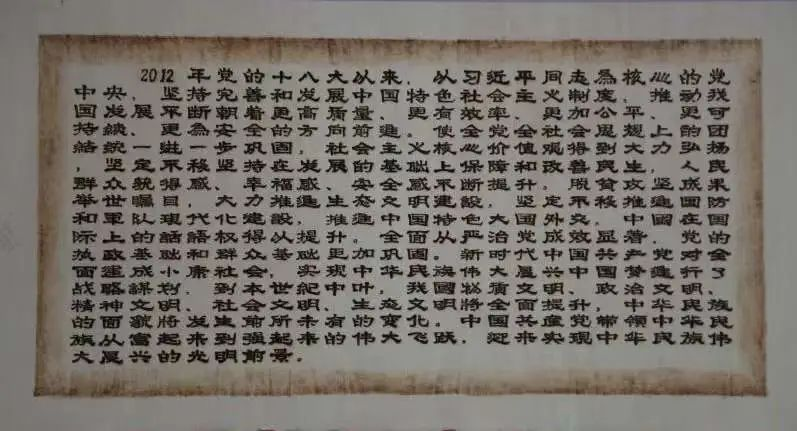 2012年党的十八大以来，从习近平同志為核心的党
中央，坚持完善和发展中国特色社会主义制度，推动我
国发展不断朝着更高质量、更有效率、更加公平、更可
持続、更為安全的方向前進。使全党全社会思想上的团
結統一進一步巩固，社会主义核心价值观得到大力弘扬
，坚定不移坚持在发展的基础上保障和改善民生，人民
群众就得感、幸福感、安全感不断提升。脱贫攻坚成果
举世瞩目，大力推進生态文明建設，坚定不移推進国防
和軍队現代化建設，推進中国特色大国外交，中國在国
际上的話語权得从提升。全面从严治党成效显著，党的
执政基础和群众基础更加巩固。新时代中国共产党对全
面建成小康社会，实现中华民族伟大复兴中国梦進行了
战略謀划，到本世紀中叶，我國物质文明、政治文明、
精神文明、社会文明、生态文明將全面提升，中华民族
的面貌將发生前所未有的变化。中国共産党带领中华民
族从富起来到强起来的伟大飞跃，迎来实现中华民族伟
大复兴的光明前景。